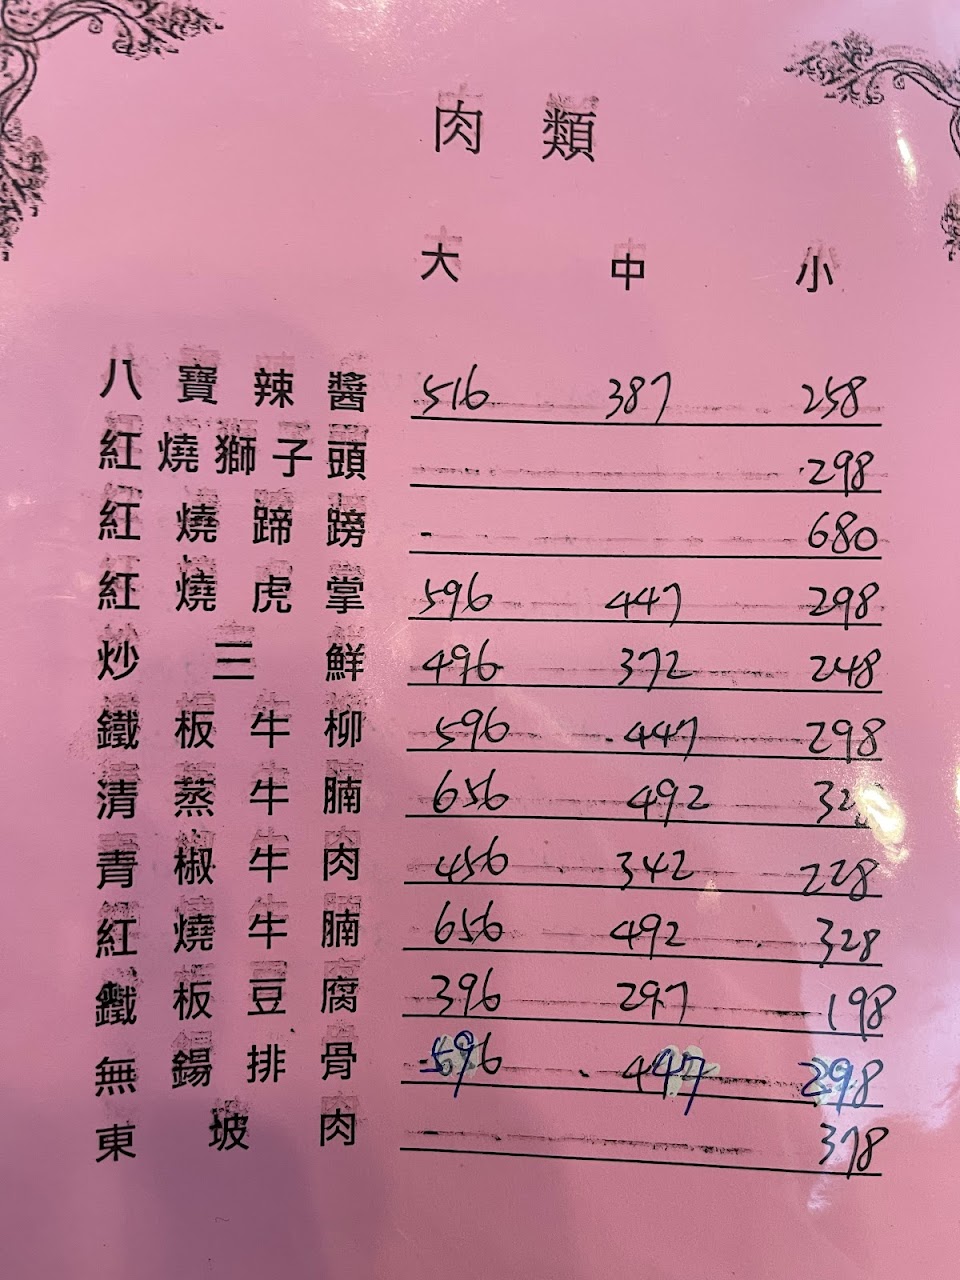 肉類
大 中 小
八寶辣醬 516 387 258
紅燒獅子頭 298
紅燒蹄膀 680
紅燒虎掌 596 447 298
炒三鮮 496 372 248
鐵板牛柳 596 447 298
清蒸牛腩 656 492
青椒牛肉 456 342 228
紅燒牛腩 656 492 328
鐵板豆腐 396 297 198
無錫排骨 596 447 298
東坡肉 378